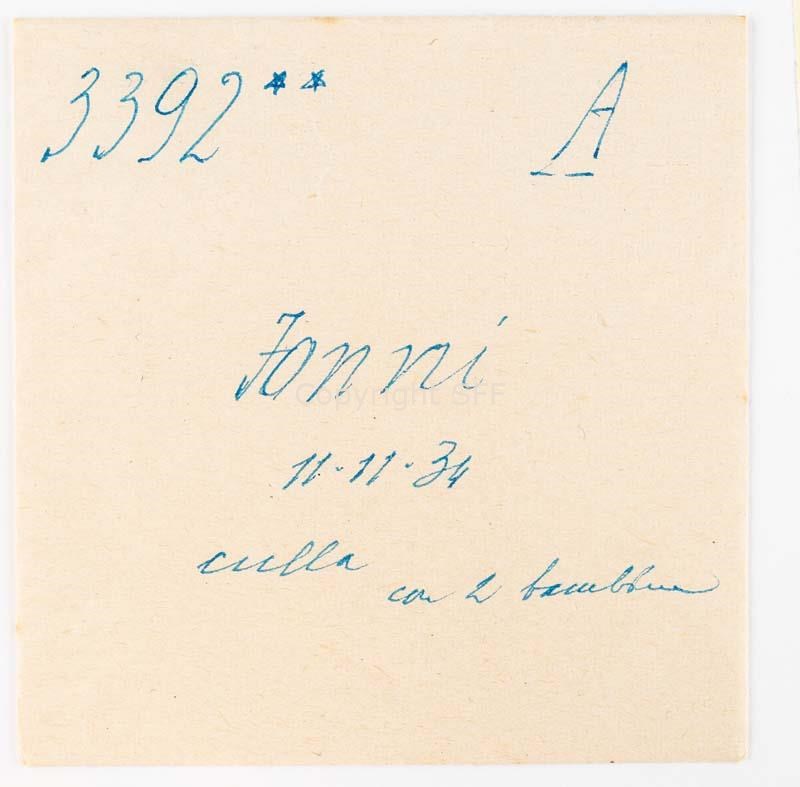 3392** A
Fonni
Copyright SFF
11-11-34
culla
con 2 bambine